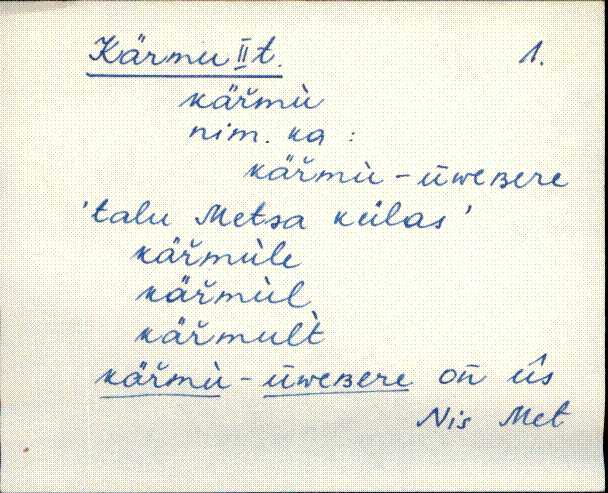 Kärmu II t. 1.
käřmù
nim. ka :
käřmù - ūwᴇʙere
'talu Metsa külas'
käřmùle
käřmùl
käřmult̀
käřmù - ūwᴇʙere on̄ ûs
Nis Met